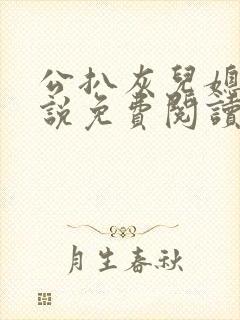 公扒灰兒媳
說免費閱讀
月生春秋